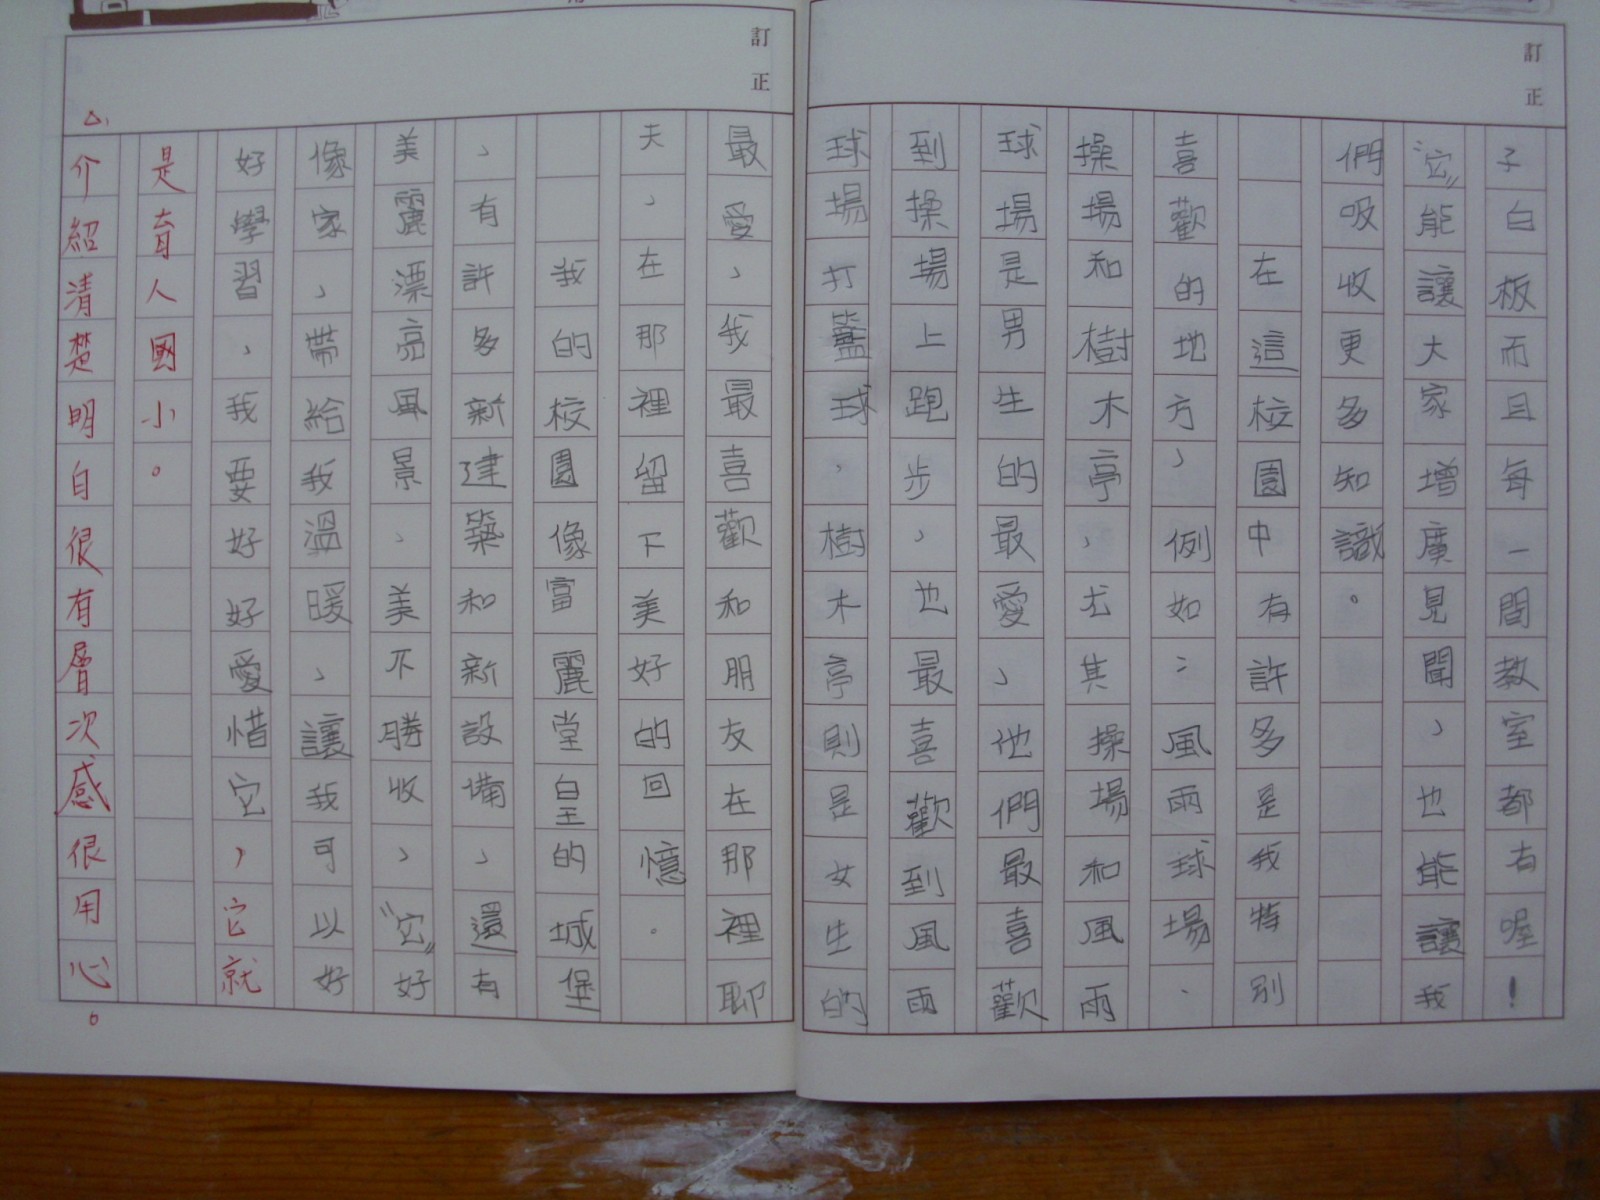 訂正
子白板而且每一間教室都有喔！
“它”能讓大家增廣見聞，也能讓我
們吸收更多知識。
在這校園中有許多是我特別
喜歡的地方，例如：風雨球場、
操場和樹木亭，尤其操場和風雨
球場是男生的最愛，他們最喜歡
到操場上跑步，也最喜歡到風雨
球場打籃球，樹木亭則是女生的
訂正
最愛，我最喜歡和朋友在那裡聊
天，在那裡留下美好的回憶。
我的校園像富麗堂皇的城堡
，有許多新建築和新設備，還有
美麗漂亮風景，美不勝收，“它”好
像家，帶給我溫暖，讓我可以好
好學習，我要好好愛惜它，它就
是育人國小。
介紹清楚明白很有層次感很用心。